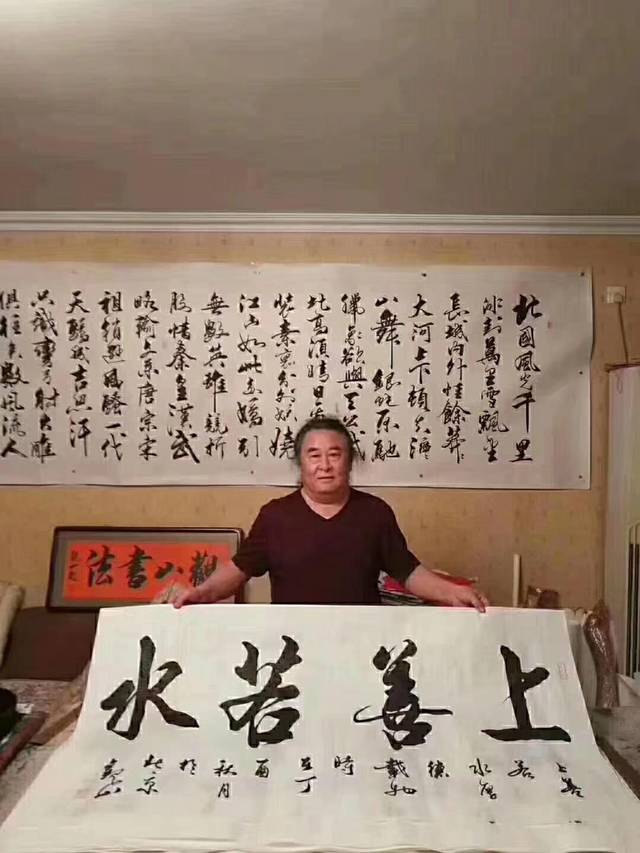 北國風光千里
冰封萬里雪飄望
長城內外惟餘莽莽
大河上下頓失滔
山舞銀蛇原馳
蠟象欲與天公試
比高須晴日看
裝素裹分外妖嬈
江山如此多嬌引
無數英雄競折
腰惜秦皇漢武
略輸文采唐宗宋
祖稍遜風騷一代
天驕成吉思汗
只識彎弓射大雕
俱往矣數風流人
觀山書法
上善若水
上善若水厚德載物時在丁酉秋月於北京